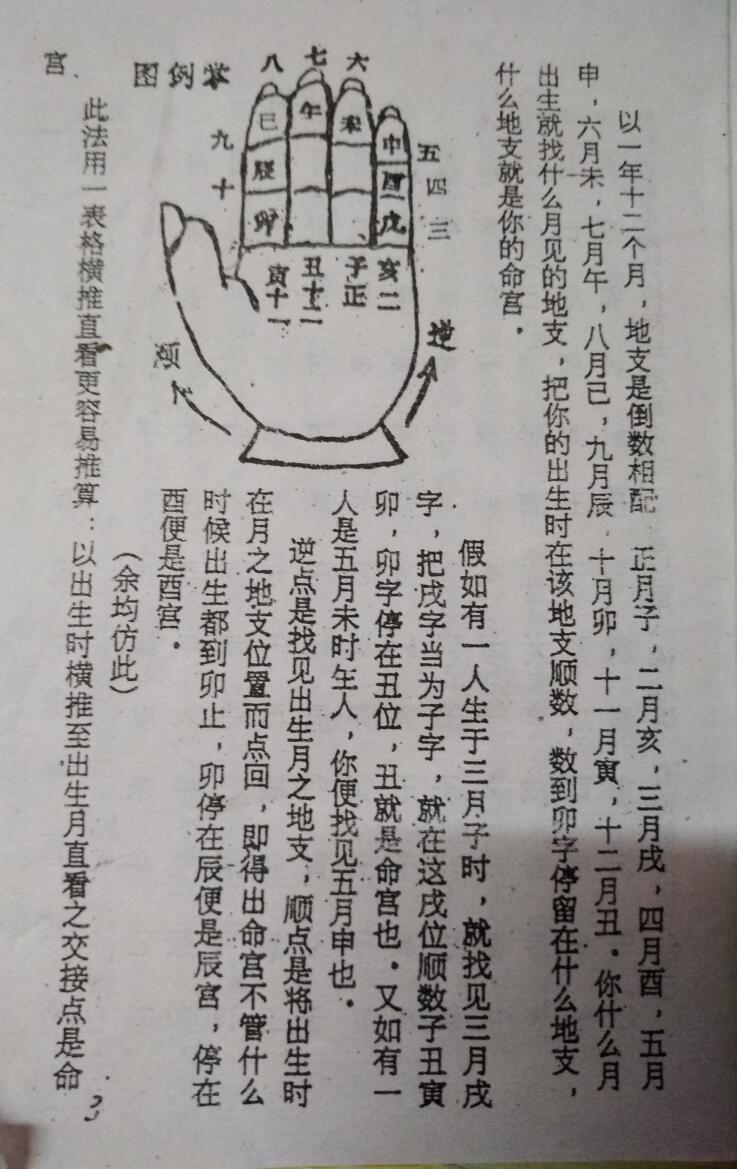 以一年十二个月，地支是倒数相配 正月子，二月亥，三月戌，四月酉，五月
申，六月未，七月午，八月巳，九月辰，十月卯，十一月寅，十二月丑．你什么月
出生就找什么月见的地支，把你的出生时在该地支顺数，数到卯字停留在什么地支，
什么地支就是你的命宫．
假如有一人生于三月子时，就找见三月戌
字，把戌字当为子字，就在这戌位顺数子丑寅
卯，卯字停在丑位，丑就是命宫也．又如有一
人是五月未时生人，你便找见五月申也．
逆点是找见出生月之地支，顺点是将出生时
在月之地支位置而点回，即得出命宫不管什么
时候出生都到卯止，卯停在辰便是辰宫，停在
酉便是酉宫．
（余均仿此）
图例掌
八 七 六
巳 午 未 申
九 辰 酉 五
十 卯 戌 四
三
寅十一 丑十二 子正 亥二
顺
逆
此法用一表格横推直看更容易推算：以出生时横推至出生月直看之交接点是命
宫．
3